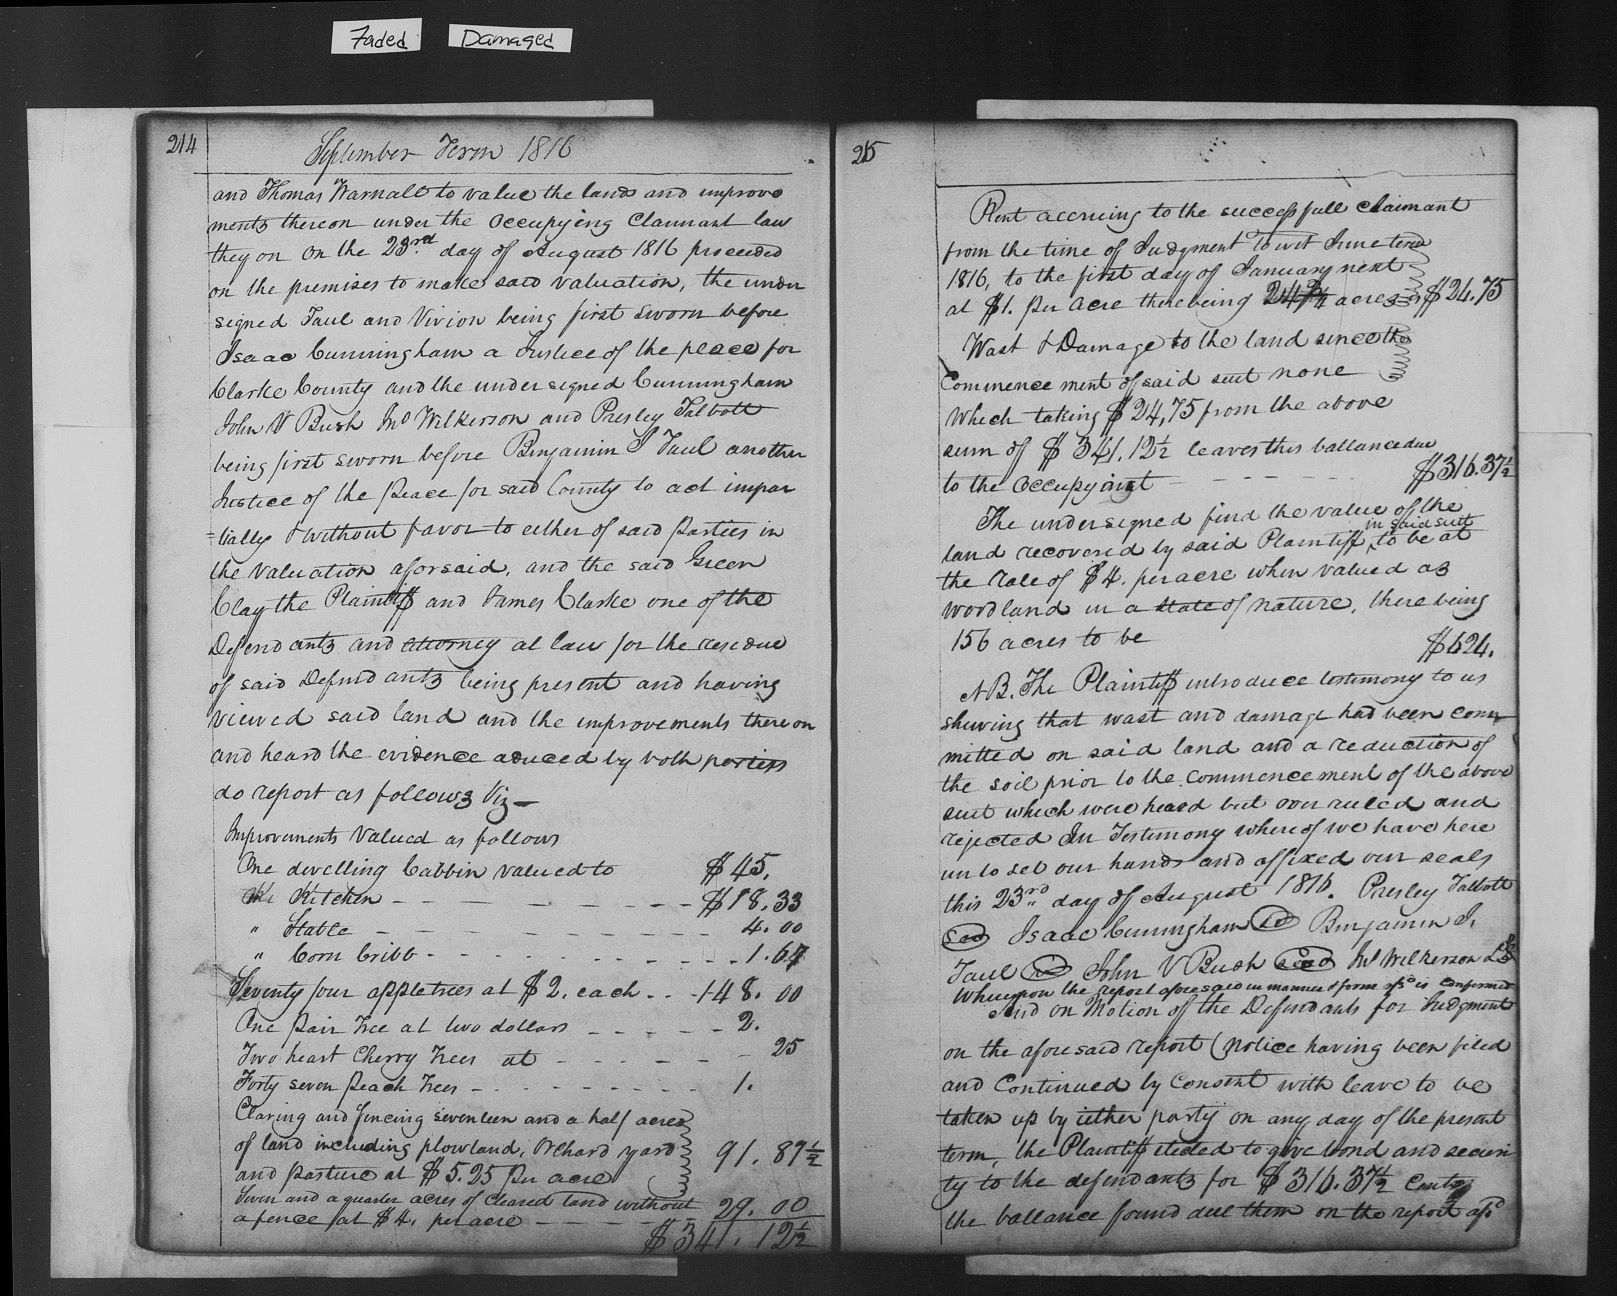 Faded Damaged
214
September Term 1816
and Thomas Warnall to value the lands and improve
ments thereon under the Occupying Claimant law
they on on the 23rd day of August 1816 proceeded
on the premises to make said valuation, the under
signed Taul and Vivion being first sworn before
Isaac Cunningham a Justice of the peace for
Clarke County and the undersigned Cunningham
John V Bush Jno Wilkerson and Presley Talbott
being first sworn before Benjamin J Taul another
Justice of the Peace for said County to act impar
=tially & without favor to either of said parties in
the valuation aforsaid, and the said Green
Clay the Plaintiff and James Clarke one of the
Defendants and attorney at law for the residue
of said Defendants being present and having
viewed said land and the improvements thereon
and heard the evidence aduced by both parties
do report as follows Viz—
Improvements Valued as follows
One dwelling Cabbin valued to $45.
Kitchen - - - - - - $18.33
" Stable - - - - - - - - 4.00
" Corn Cribb - - - - - - - 1.67
Seventy four apple trees at $2. each - - 148.00
One Pair Tree at two dollars - - - - - 2.
Two heart Cherry Trees at - - - - - 25
Forty seven Peach Trees - - - - - - - 1.
Claring and fencing seventeen and a half acres
of land including plowland, Orchard yard
and pasture at $5.25 per acre 91.87½
Seven and a quarter acres of Cleared land without
a fence at $4. per acre - - - - 29.00
$341.12½
215
Rent accruing to the successfull claimant
from the time of Judgment Towit June term
1816, to the first day of January next
at $1. per acre there being 24¾ acres is $24.75
Wast & Damage to the land since the
Commencement of said suit none
Which taking $24,75 from the above
sum of $341.12½ leaves this ballance due
to the occupyant - - - - - $316.37½
The undersigned find the value of the
in said suit
land recovered by said Plaintiff, to be at
the rate of $4. per acre when valued as
woodland in a state of nature, there being
156 acres to be $624.
NB. The Plaintiff introduce testimony to us
shewing that wast and damage had been com
mitted on said land and a reduction of
the soil prior to the commencement of the above
suit which were heard but over ruled and
rejected In Testimony whereof we have here
unto set our hands and affixed our seals
this 23rd day of August 1816. Presley Talbott
seal Isaac Cunningham seal Benjamin J.
Taul seal John V Bush seal Jno Wilkerson LS
Whereupon the report aforesaid in manner & form afsd is confirmed
And on Motion of the Defendants for Judgment
on the aforesaid report (notice having been filed
and Continued by Consent with leave to be
taken up by either party on any day of the present
term, the Plaintiff elected to give bond and securi
ty to the defendants for $316.37½ Cents
the ballance found due them on the report afsd